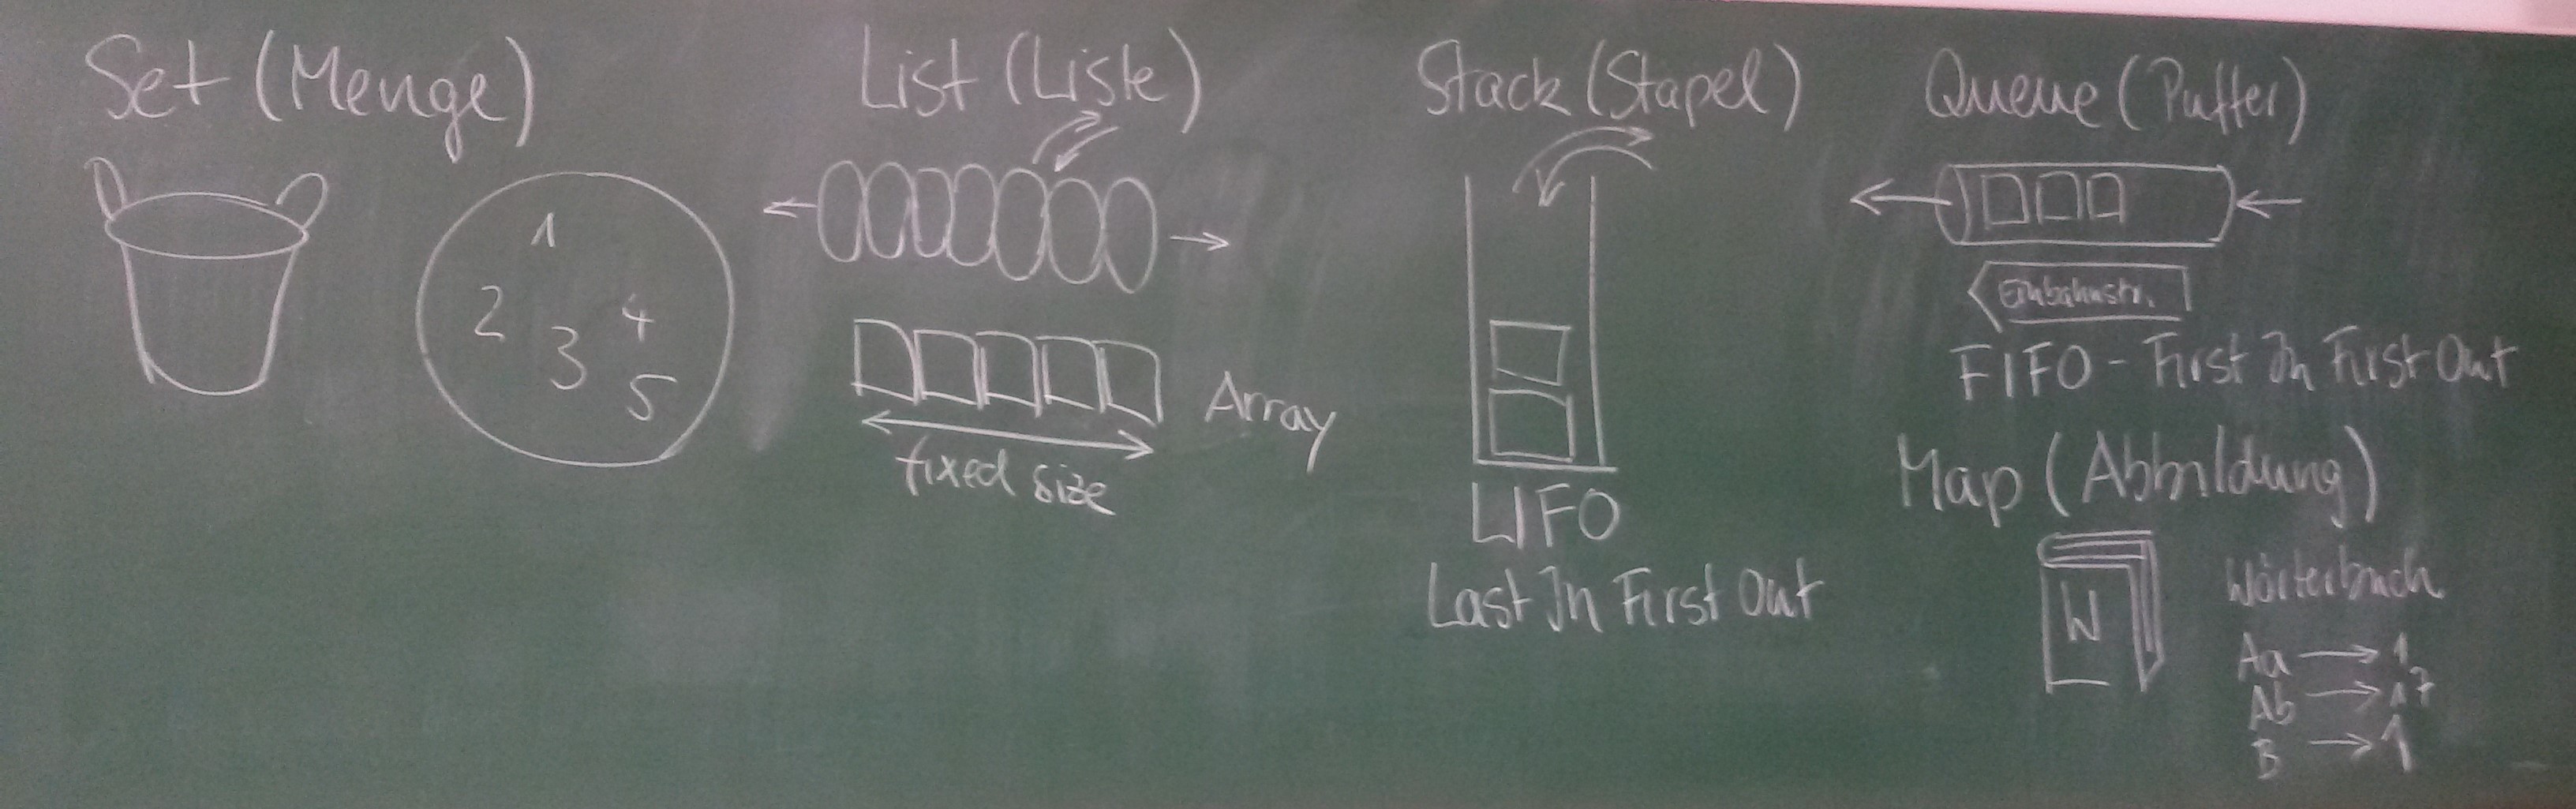 Set (Menge)
1
2
3
4
5
List (Liste)
Array
fixed size
Stack (Stapel)
LIFO
Last In First Out
Queue (Puffer)
Einbahnstr.
FIFO - First In First Out
Map (Abbildung)
W
Wörterbuch
Aa → 1
Ab → 17
B → 1